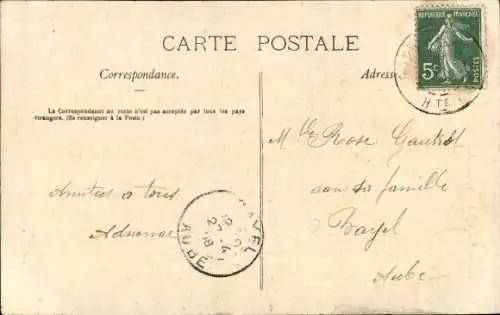 CARTE POSTALE
Correspondance.
Adresse
La Correspondance au recto n'est pas acceptée par tous les pays
étrangers. (Se renseigner à la Poste.)
Amitiés à tous
Adrienne
Mlle Rose
dans sa famille
Bayel
Aube
REPUBLIQUE FRANÇAISE
5c
POSTES
H.TE
BAYEL
AUBE